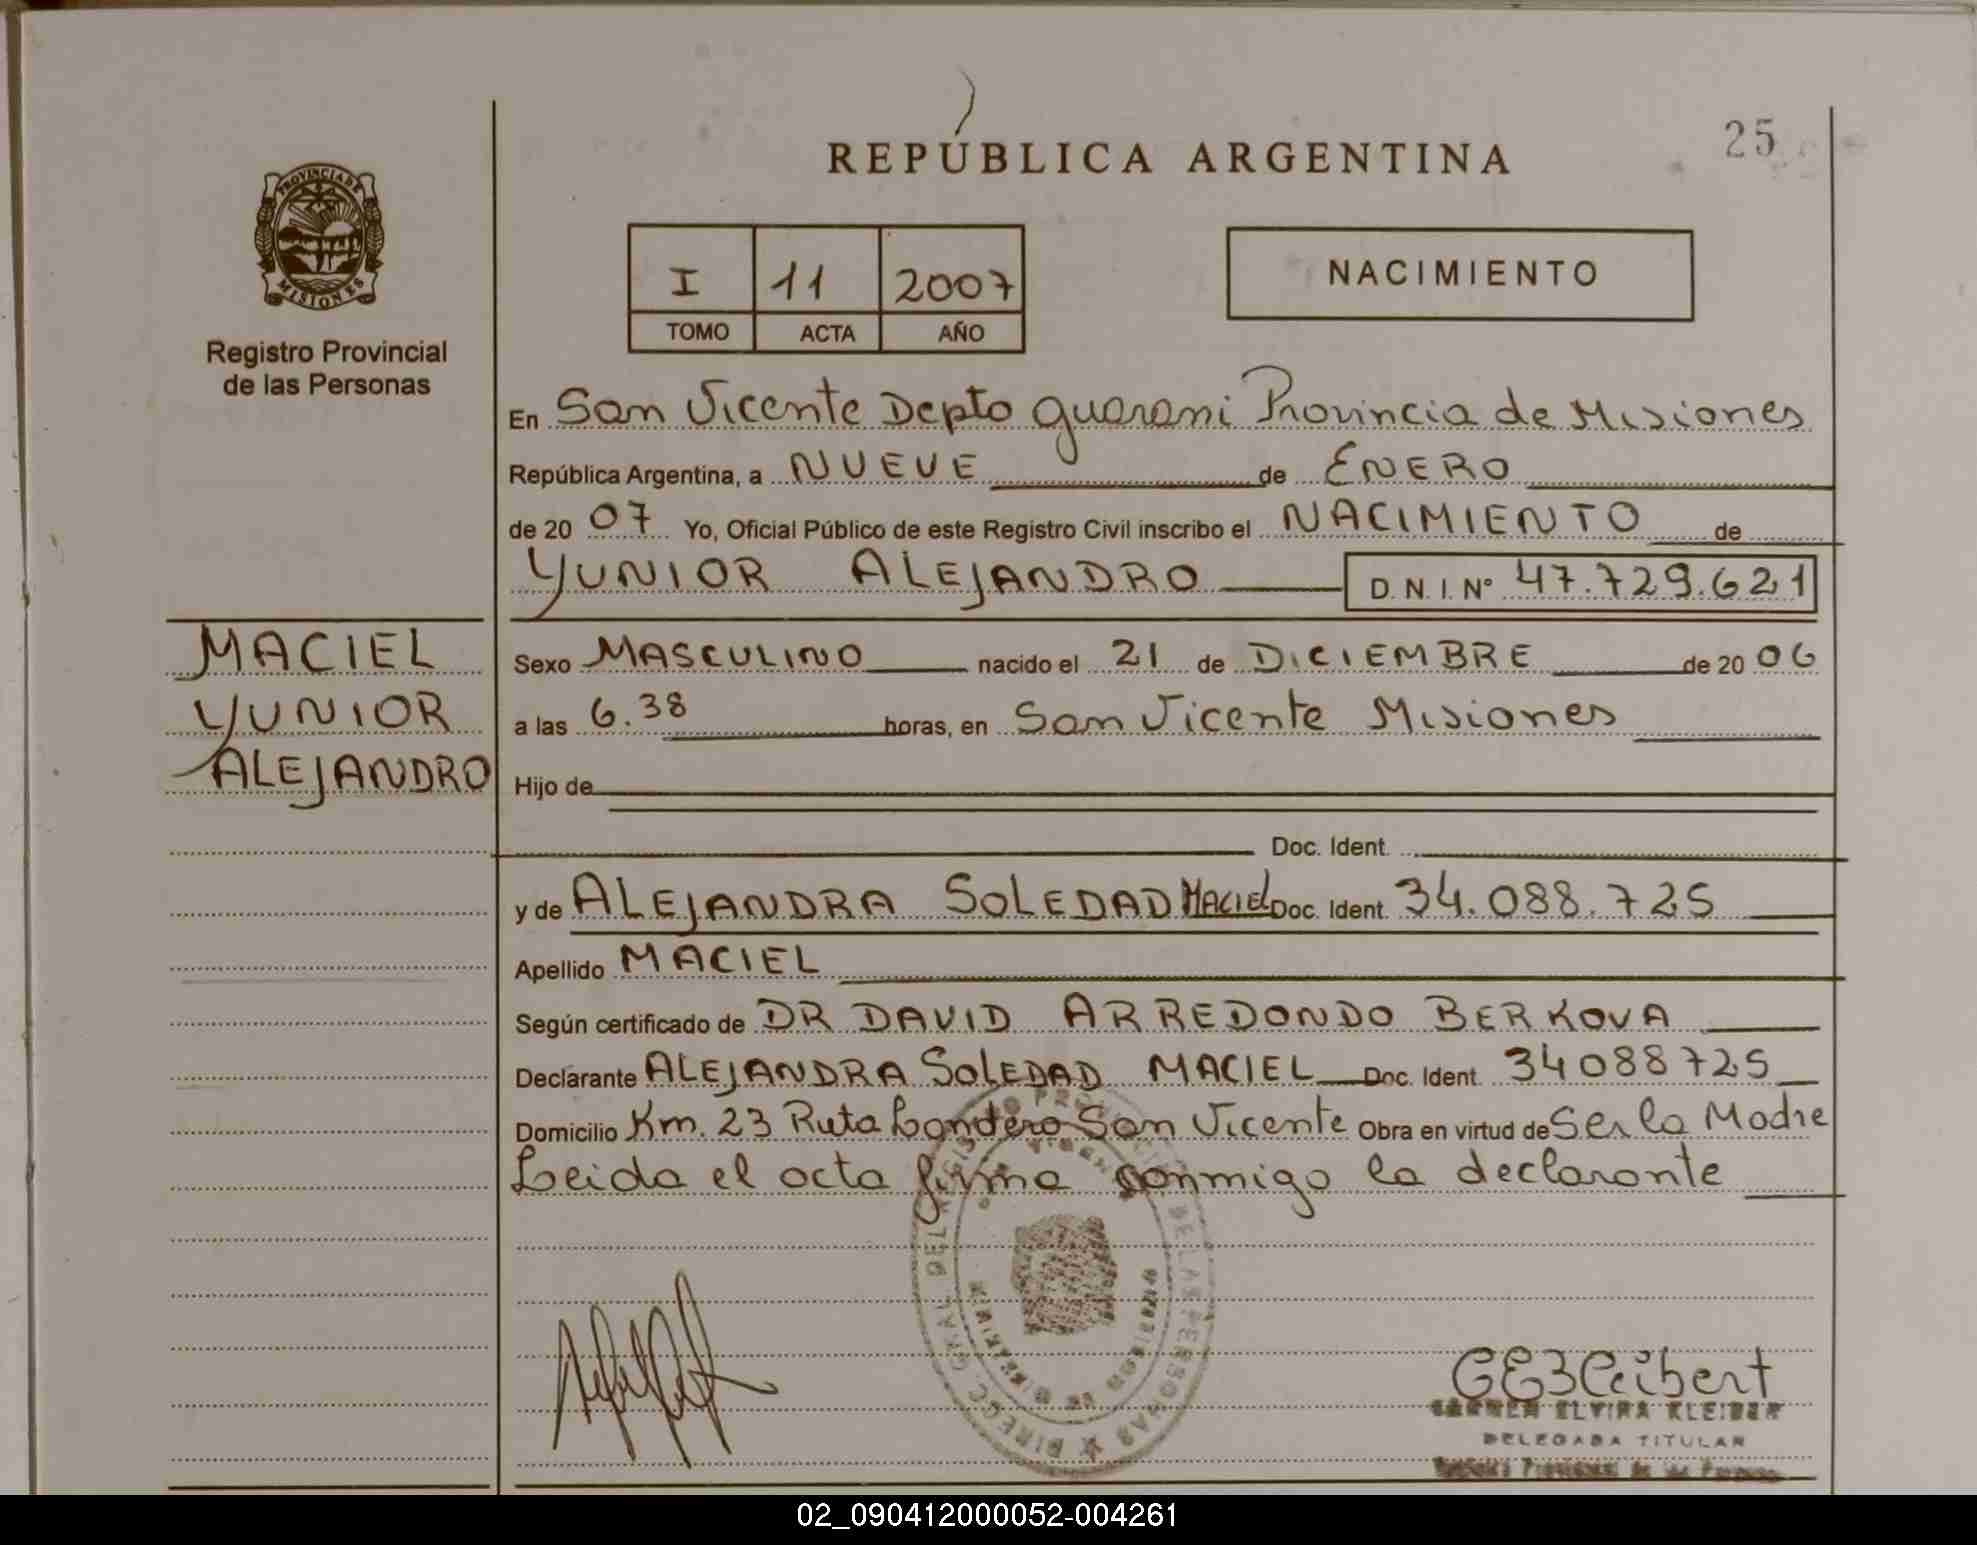 REPÚBLICA ARGENTINA
25
PROVINCIA DE
MISIONES
Registro Provincial
de las Personas
I 11 2007
TOMO ACTA AÑO
NACIMIENTO
En San Vicente Depto Guarani Provincia de Misiones
República Argentina, a NUEVE de ENERO
de 20 07 Yo, Oficial Público de este Registro Civil inscribo el NACIMIENTO de
YUNIOR ALEJANDRO D.N.I. N° 47.729.621
MACIEL
YUNIOR
ALEJANDRO
Sexo MASCULINO nacido el 21 de DICIEMBRE de 20 06
a las 6.38 horas, en San Vicente Misiones
Hijo de
Doc. Ident.
y de ALEJANDRA SOLEDAD MACIEL Doc. Ident. 34.088.725
Apellido MACIEL
Según certificado de DR DAVID ARREDONDO BERKOVA
Declarante ALEJANDRA SOLEDAD MACIEL Doc. Ident. 34088725
Domicilio Km. 23 Ruta Londero San Vicente Obra en virtud de Ser la Madre
Leida el acta firma conmigo la declarante
DIRECC. GRAL. DEL REGISTRO PROVINCIAL DE LAS PERSONAS
CARMEN ELVIRA KLEIBER
DELEGADA TITULAR
Registro Provincial de las Personas
02_090412000052-004261